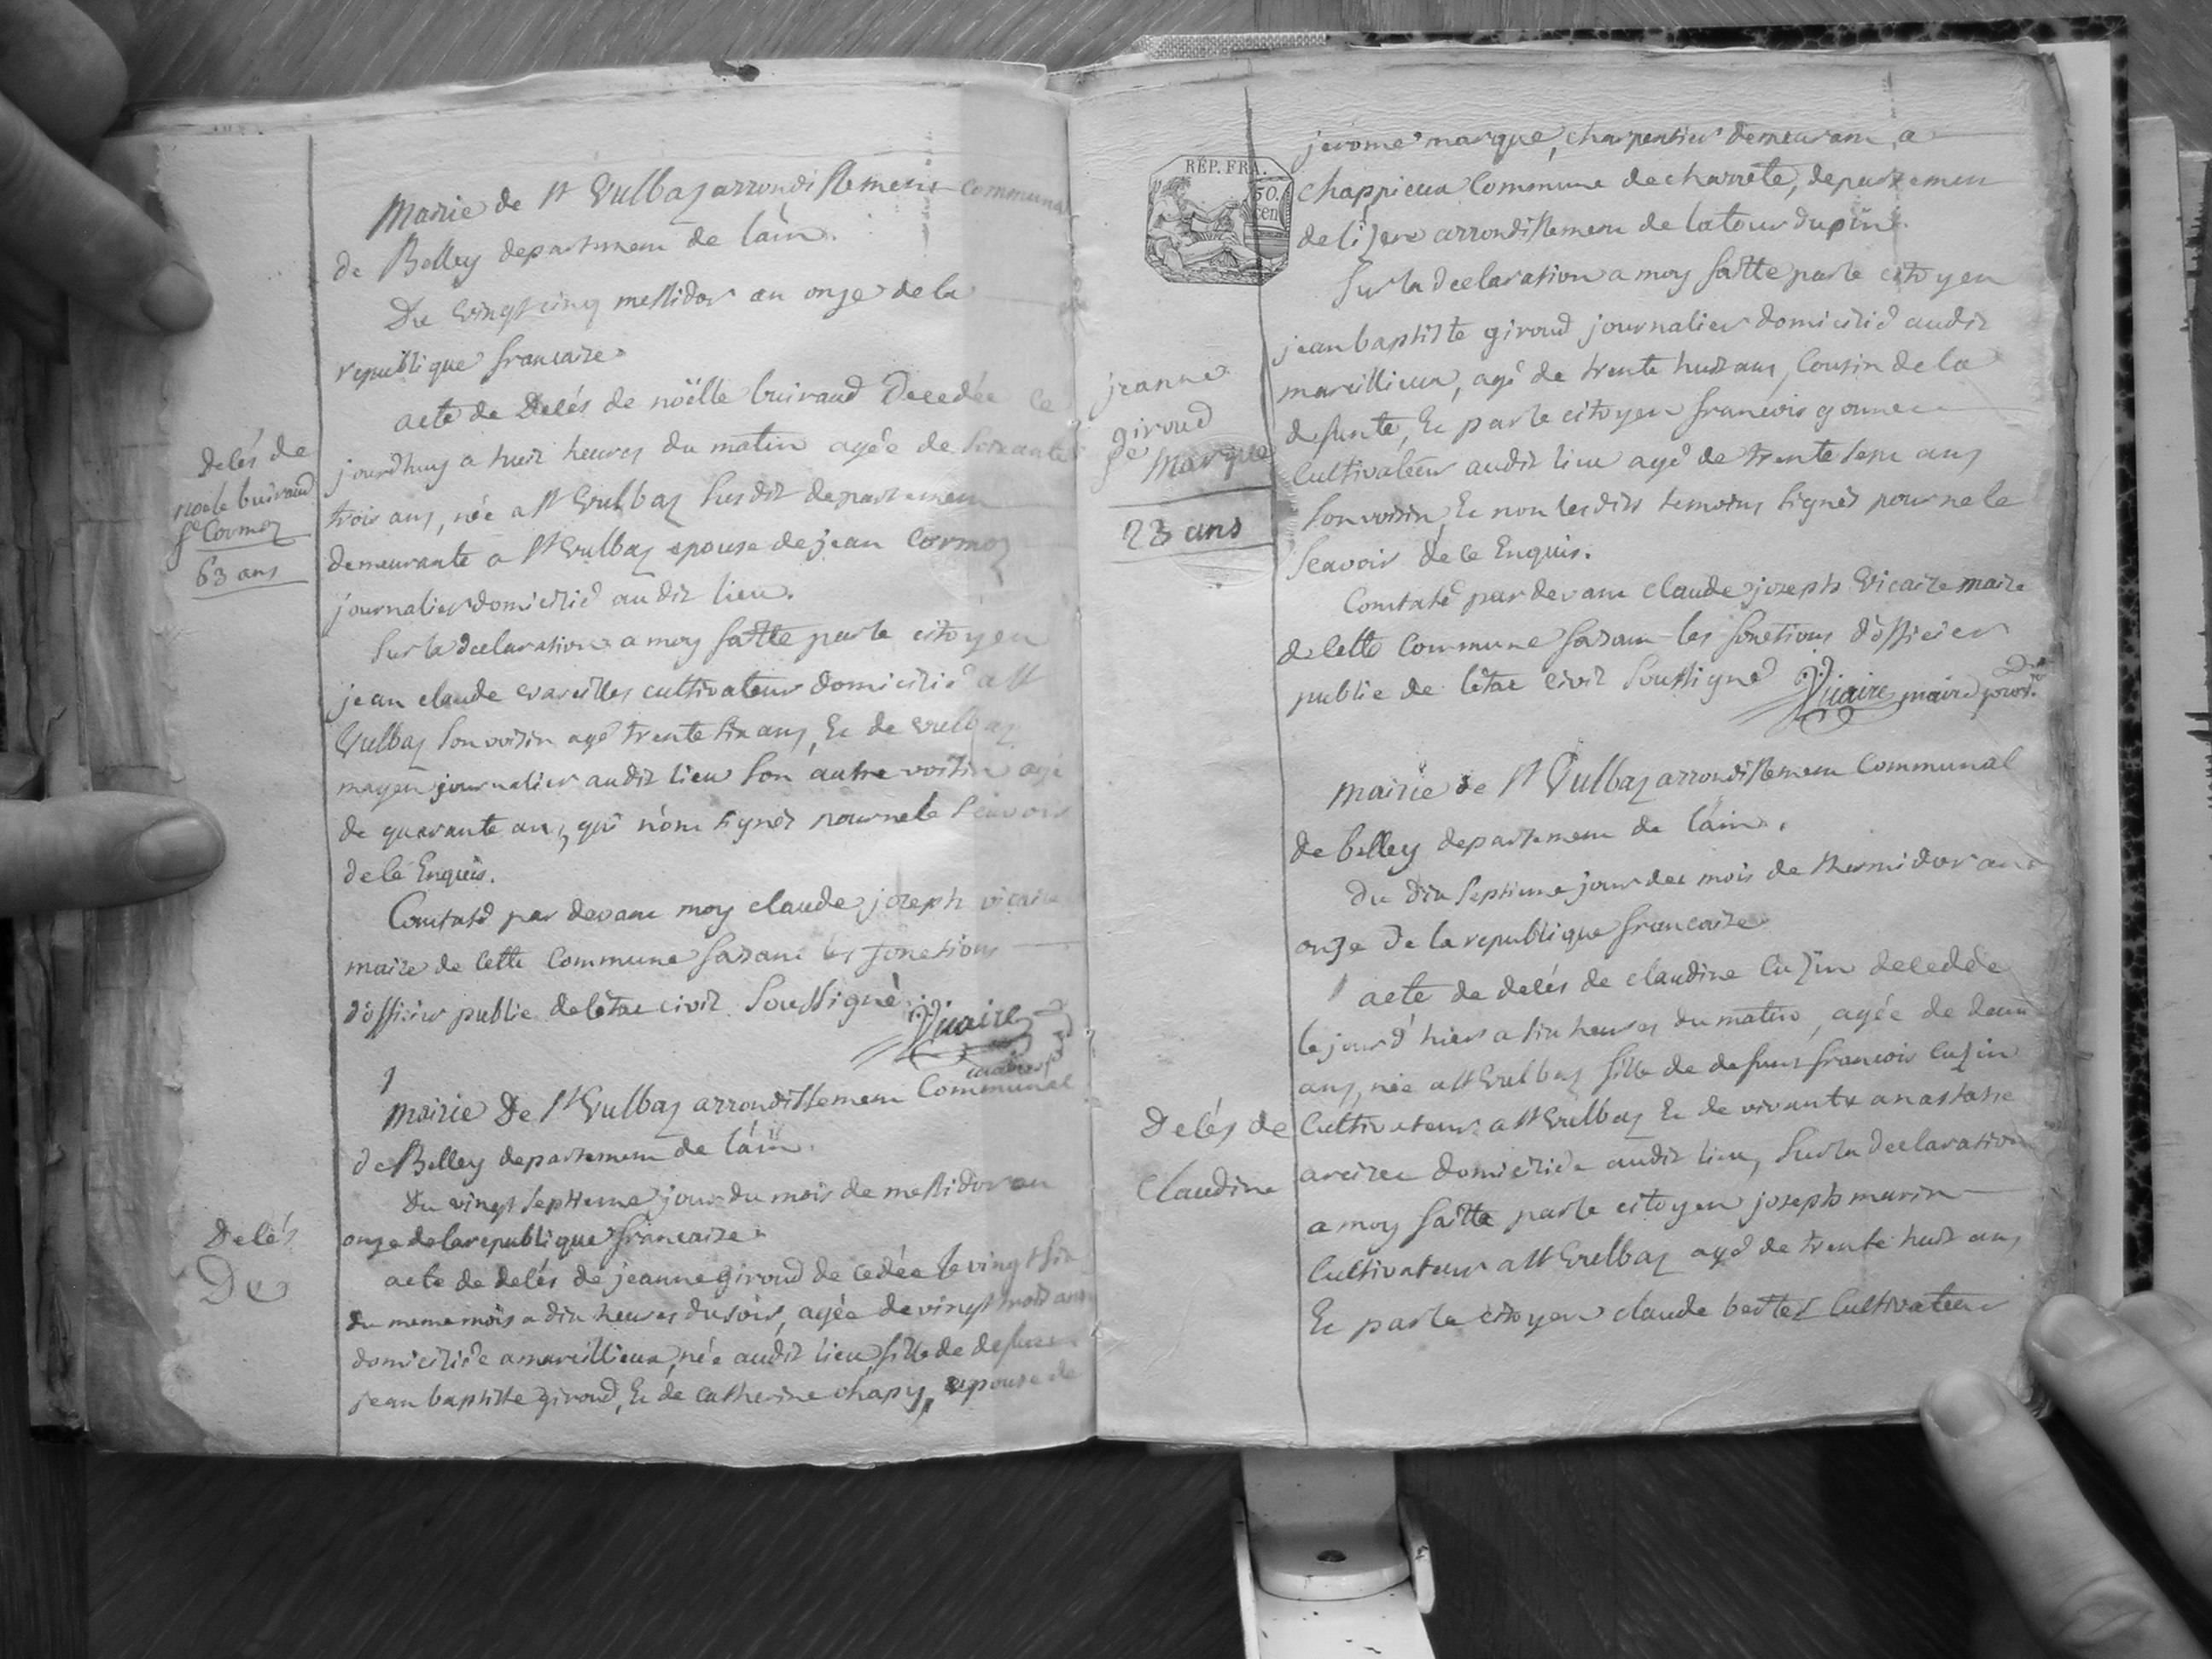 Mairie de St Vulbaz arrondissement communal
de Belley departement de l'ain.
Du vingt cinq messidor an onze de la
republique francaise
acte de decés de noëlle buiraud decedée ce
jourdhuy a huit heures du matin agée de soixante
trois ans, née a St Vulbaz susdit departement
demeurante a St Vulbaz epouse de jean Cormoz
journalier domicilié audit lieu.
Sur la declaration a moy faitte par le citoyen
jean claude vareilles cultivateur domicilié a St
Vulbaz son voisin agé trente six ans, Et de vulbaz
mayen journalier audit lieu son autre voisin agé
de quarante ans, qui n'ont signés pour ne le scavoir
de ce Enquis.
Constaté par devant moy claude joseph vicaire
maire de cette Commune faisant les fonctions
d'officier public de l'état civil soussigné
Vicaire
Decés de
noele buiraud
fe Cormoz
63 ans
Mairie De St Vulbaz arrondissement Communal
de Belley departement de l'ain.
Du vingt septieme jour du mois de messidor an
onze de la republique francaise
acte de decés de jeanne giroud decedée le vingt six
du meme mois a dix heures du soir, agée de vingt trois ans
domiciliée a marcillieux, née audit lieu, fille de defunt
jean baptiste giroud, Et de catherine chapy, epouse de
Decés
De
jerome marque, charpentier demeurant a
chappieux Commune de charrete, departement
de lizere arrondissement de la tour dupin.
Sur la declaration a moy faitte par le citoyen
jean baptiste giroud journalier domicilié audit
marcillieux, agé de trente huit ans, Cousin de la
defunte, Et par le citoyen francois gonnet
Cultivateur audit lieu agé de trente sept ans
son voisin, Et non lesdits temoins signés pour ne le
scavoir de ce Enquis.
Constaté par devant claude joseph Vicaire maire
de cette Commune faisant les fonctions d'officier
public de létat civil soussigné Vicaire maire
RÉP. FRA.
50.
cen
jeanne
giroud
fe Marque
23 ans
mairie de St Vulbaz arrondissement Communal
de belley departement de l'ain.
Du dix septieme jour du mois de thermidor an
onze de la republique francaise
acte de decés de claudine Cuzin decedée
le jour d'hier a six heures du matin, agée de deux
ans, née a St Vulbaz fille de defunt francois Cuzin
Cultivateur a St Vulbaz Et de vivante anastasie
domiciliée audit lieu, Sur la declaration
a moy faitte par le citoyen joseph marin
Cultivateur a St Vulbaz agé de trente huit ans
Et par le citoyen claude Cultivateur
Decés de
Claudine